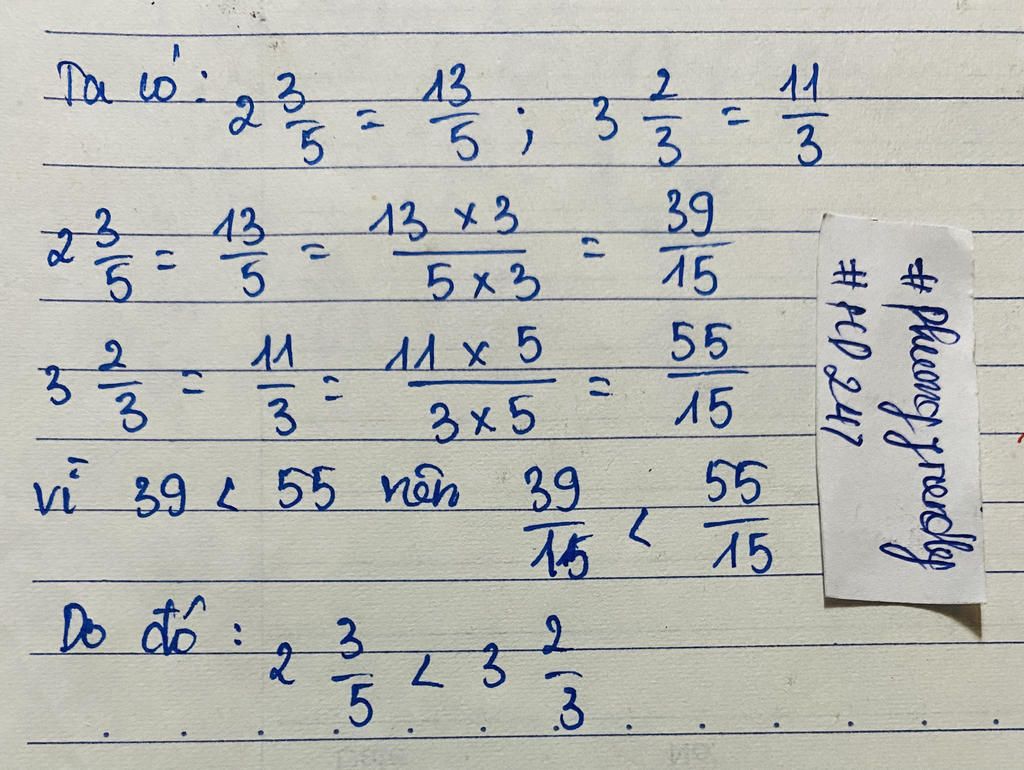 Ta có: 2 3/5 = 13/5 ; 3 2/3 = 11/3
2 3/5 = 13/5 = 13 × 3 / 5 × 3 = 39/15
3 2/3 = 11/3 = 11 × 5 / 3 × 5 = 55/15
vì 39 < 55 nên 39/15 < 55/15
Do đó: 2 3/5 < 3 2/3
#MD247